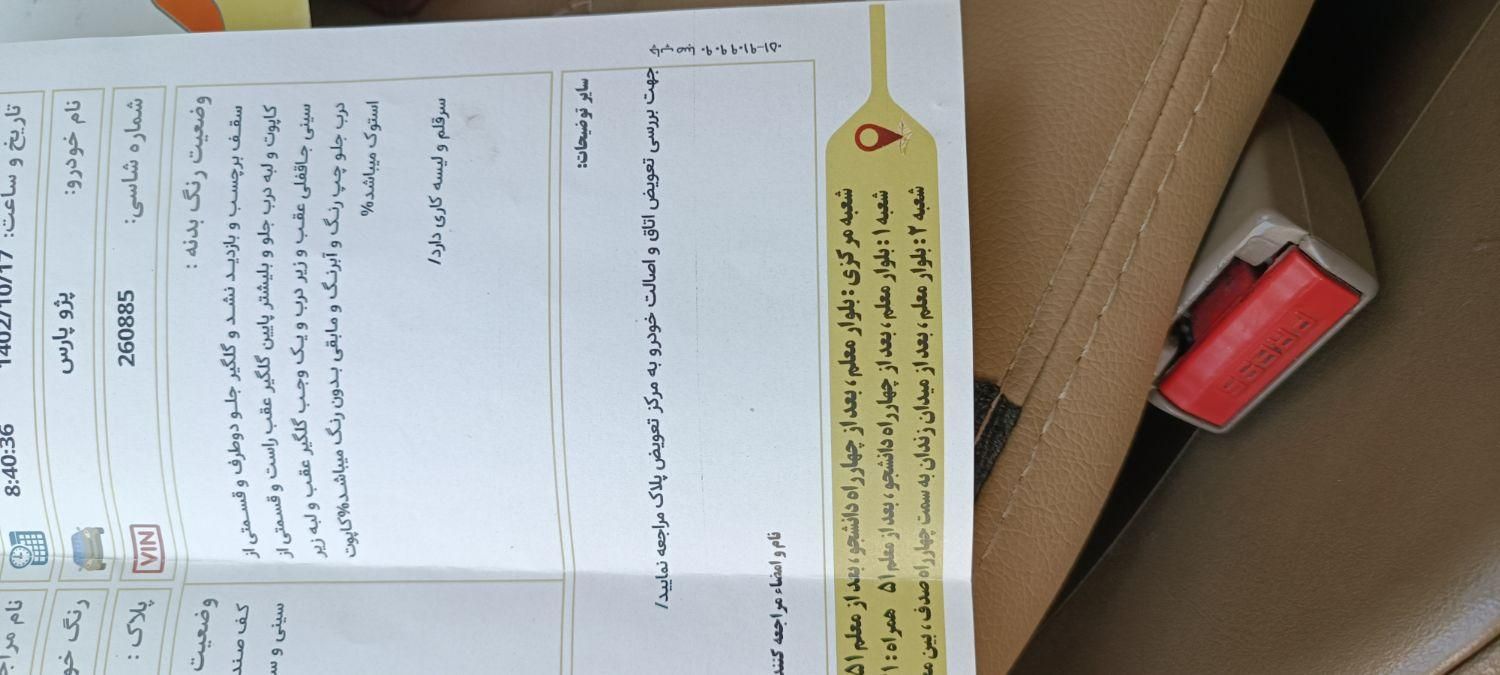 تاریخ و ساعت: 1402/10/17 8:40:36
نام خودرو: پژو پارس
شماره شاسی: 260885
VIN
وضعیت رنگ بدنه :
سقف برچسب و بازدید نشد و گلگیر جلو دوطرف و قسمتی از
کاپوت و لبه درب جلو و بلیشتر پایین گلگیر عقب راست و قسمتی از
سینی جاقفلی عقب و زیر درب و یک وجب گلگیر عقب و لبه زیر
درب جلو چپ رنگ و آبرنگ و مابقی بدون رنگ میباشد%کاپوت
استوک میباشد%
سرقلم و لیسه کاری دارد/
رنگ
پلاک :
وضعیت
سینی و
سایر توضیحات:
جهت بررسی تعویض اتاق و اصالت خودرو به مرکز تعویض پلاک مراجعه نمایید/
نام و امضاء مراجعه
شعبه مرکزی : بلوار معلم ، بعد از چهارراه دانشجو ، بعد از معلم ۵۱
شعبه ۱ : بلوار معلم ، بعد از چهارراه دانشجو ، بعد از معلم ۵۱ همراه :
شعبه ۲ : بلوار معلم ، بعد از میدان زندان به سمت چهارراه صدف ، بین
PRESS